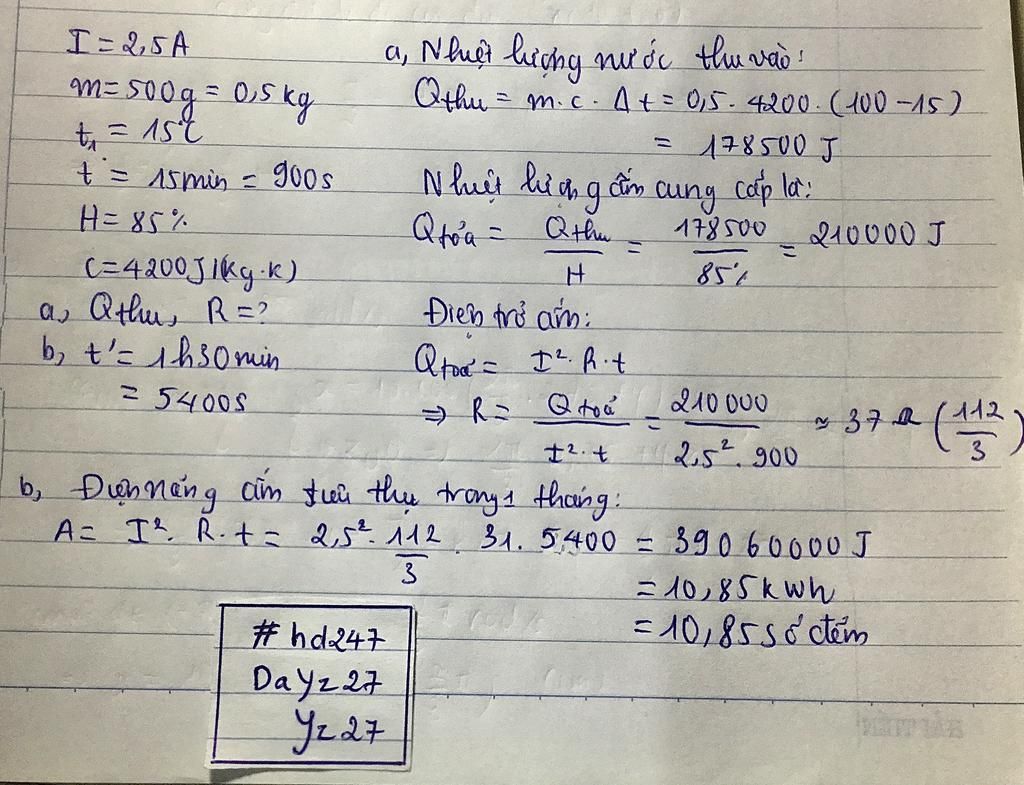 I = 2,5A
m = 500g = 0,5 kg
t₁ = 15°C
t = 15min = 900s
H = 85%
C = 4200J/(kg.k)
a, Qthu, R = ?
b, t' = 1h30min
= 5400s
a, Nhiệt lượng nước thu vào:
Qthu = m.c.Δt = 0,5.4200.(100-15)
= 178500 J
Nhiệt lượng ấm cung cấp là:
Qtỏa = Qthu/H = 178500/85% = 210000 J
Điện trở ấm:
Qtoả = I².R.t
⇒ R = Qtoả/I².t = 210000/2,5².900 ≈ 37 Ω (112/3)
b, Điện năng ấm tiêu thụ trong 1 tháng:
A = I².R.t = 2,5².112/3.31.5400 = 39060000 J
= 10,85 kWh
= 10,85 số đếm
#hd247
DaYz27
Yz27